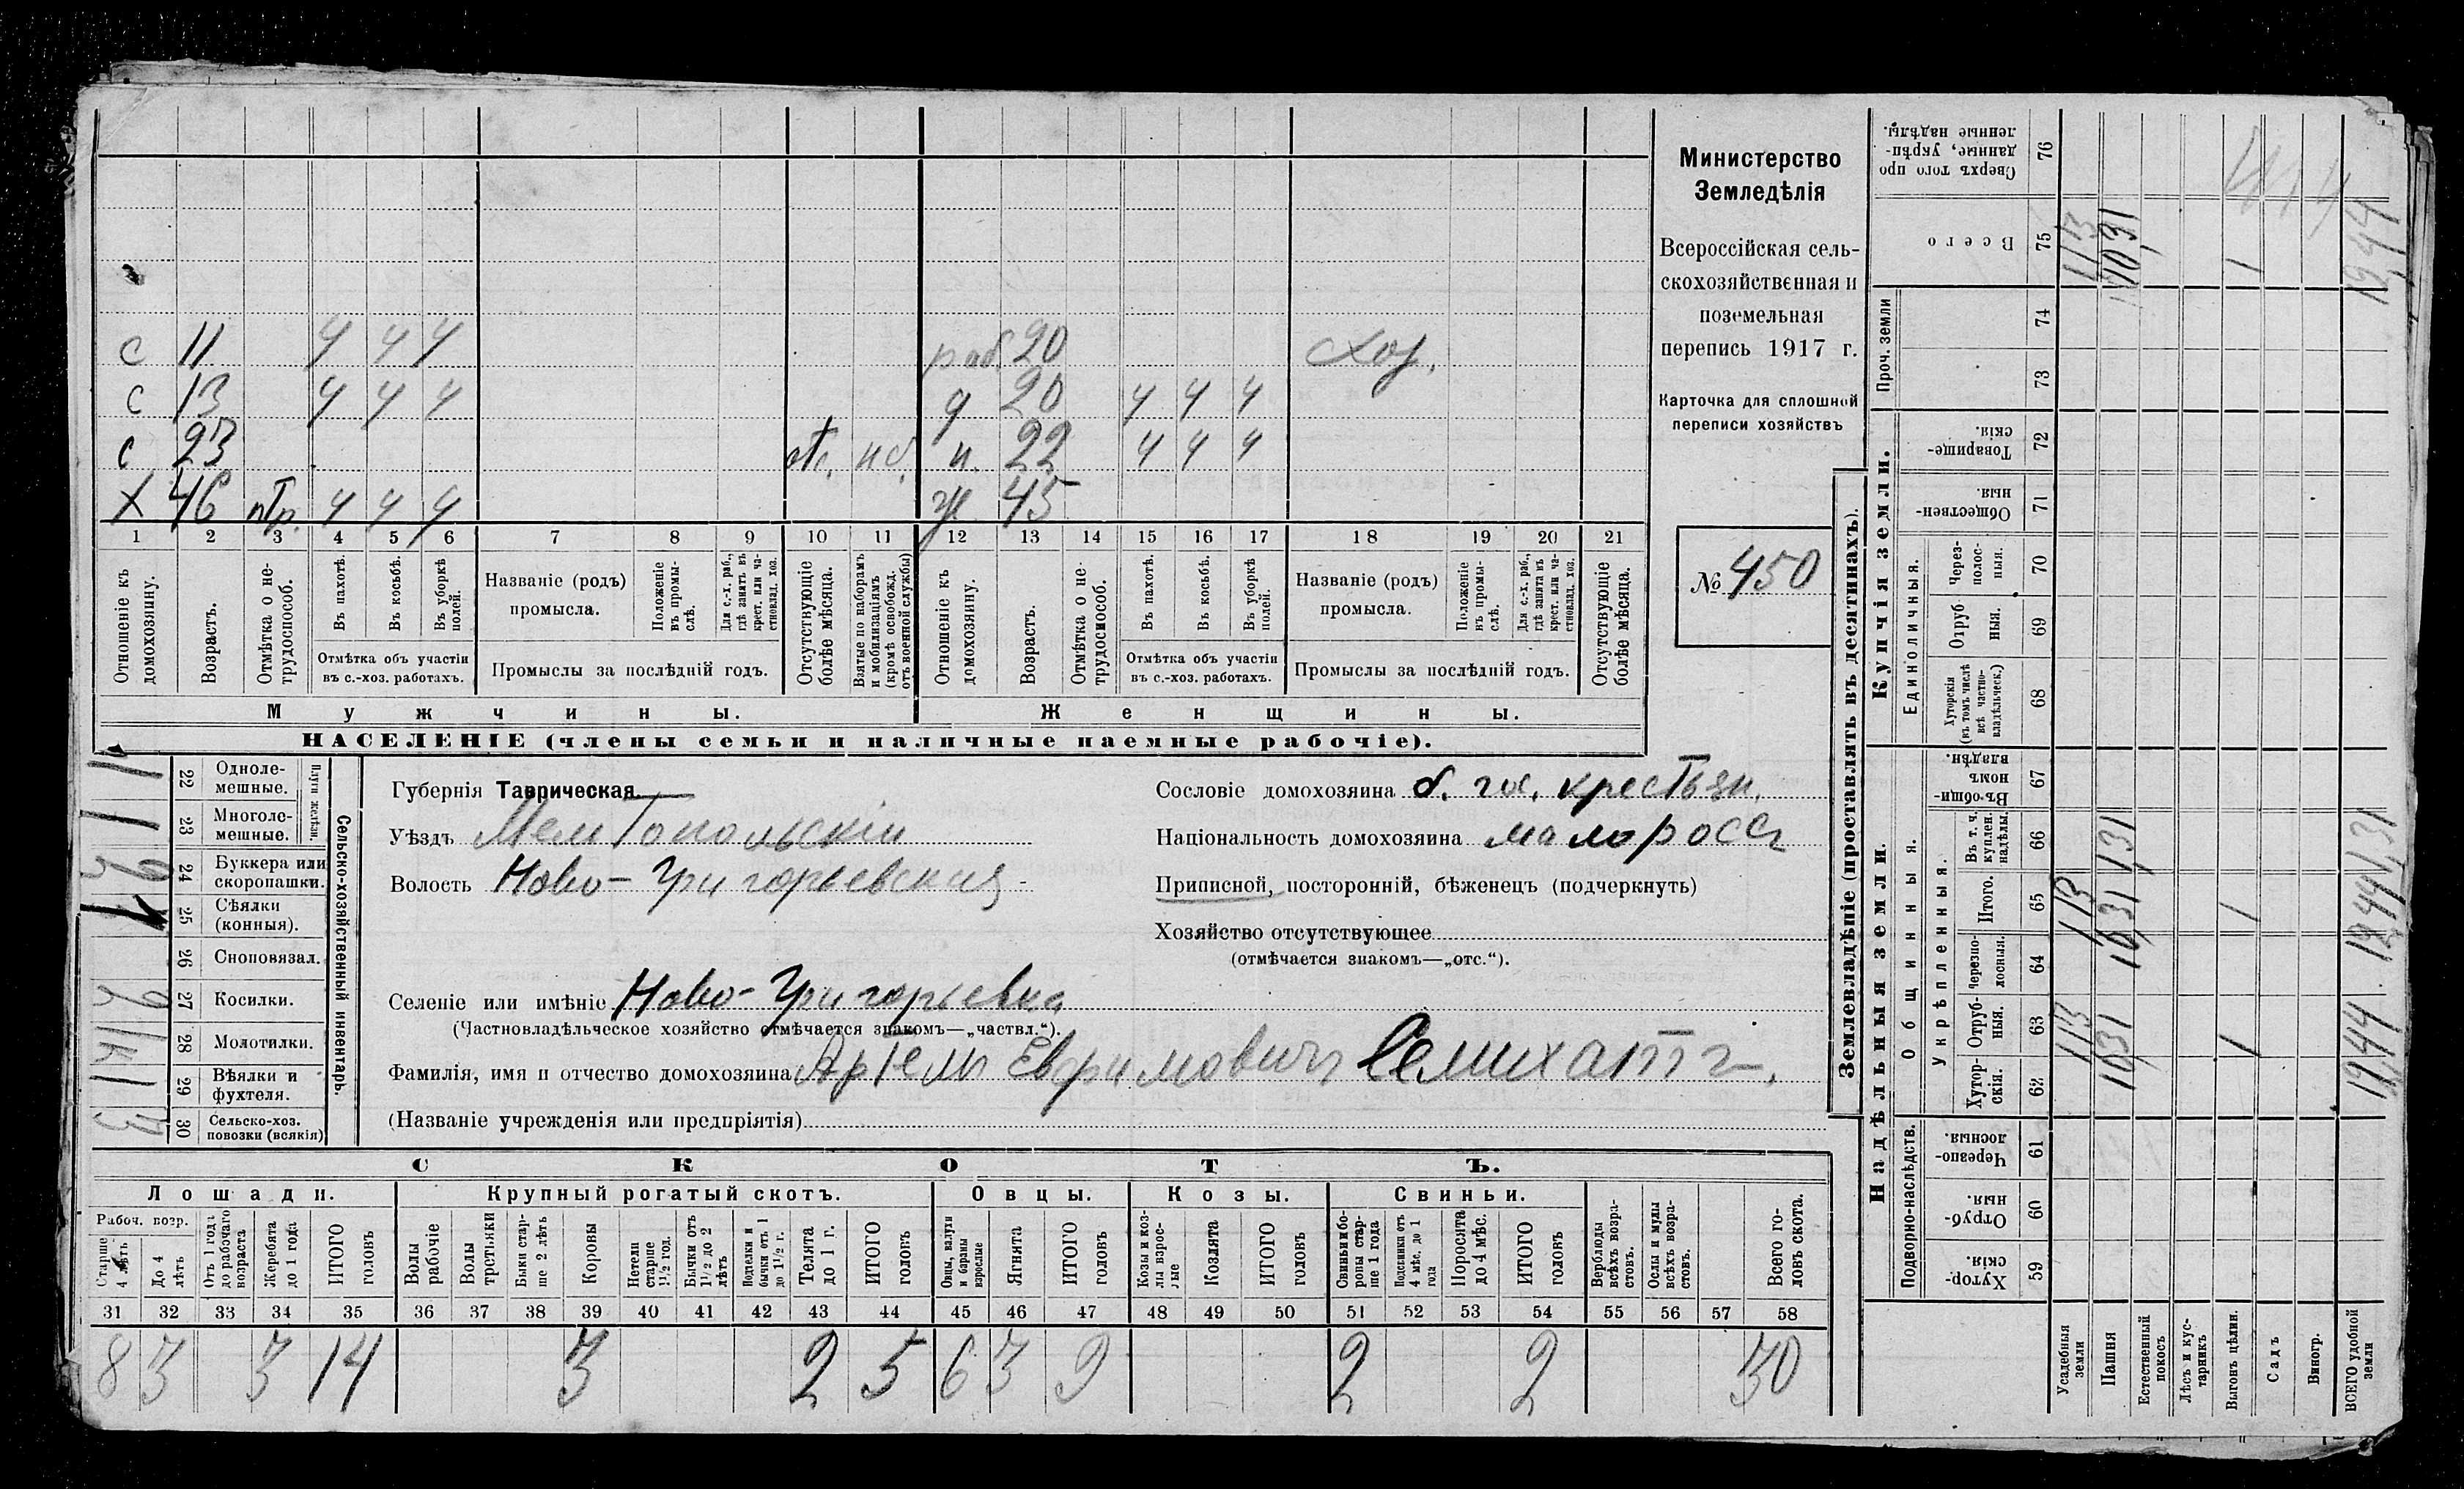 Министерство
Земледѣлія
Всероссійская сель-
скохозяйственная и
поземельная
перепись 1917 г.
Карточка для сплошной
переписи хозяйствъ
№ 450
с 11 ч ч ч раб. 20 хоз.
с 13 ч ч ч д 20 ч ч ч
с 23 отс. н. 22 ч ч ч
х 46 птр. ч ч ч ж. 45
1 2 3 4 5 6 7 8 9 10 11 12 13 14 15 16 17 18 19 20 21
Отношеніе къ домохозяину.
Возрастъ.
Отмѣтка о не-трудоспособ.
Въ пахотѣ.
Въ косьбѣ.
Въ уборкѣ полей.
Отмѣтка объ участіи въ с.-хоз. работахъ.
Названіе (родъ) промысла.
Положеніе въ промы-слѣ.
Для с.-х. раб., гдѣ занятъ въ крест. или ча-стновлад. хоз.
Промыслы за послѣдній годъ.
Отсутствующіе болѣе мѣсяца.
Взятые по наборамъ и мобилизаціямъ (кромѣ освобожд. отъ военной службы)
Отношеніе къ домохозяину.
Возрастъ.
Отмѣтка о не-трудоспособ.
Въ пахотѣ.
Въ косьбѣ.
Въ уборкѣ полей.
Отмѣтка объ участіи въ с.-хоз. работахъ.
Названіе (родъ) промысла.
Положеніе въ промы-слѣ.
Для с.-х. раб., гдѣ занята въ крест. или ча-стновлад. хоз.
Промыслы за послѣдній годъ.
Отсутствующіе болѣе мѣсяца.
Мужчины.
Женщины.
НАСЕЛЕНІЕ (члены семьи и наличные наемные рабочіе).
Сельско-хозяйственный инвентарь.
Плуги желѣзн.
22 Одноле-мешные. 1
23 Многоле-мешные. 1
24 Буккера или скоропашки.
25 Сѣялки (конныя). 1
26 Сноповязал.
27 Косилки.
28 Молотилки.
29 Вѣялки и фухтеля. 1
30 Сельско-хоз. повозки (всякія)
Губернія Таврическая.
Уѣздъ Мелитопольскій
Волость Ново-Григорьевская
Селеніе или имѣніе Ново-Григорьевка
(Частновладѣльческое хозяйство отмѣчается знакомъ—„частвл.“).
Фамилія, имя и отчество домохозяина Артемъ Евфимовичъ Семихатъ.
(Названіе учрежденія или предпріятія)
Сословіе домохозяина б. гос. крестьян.
Національность домохозяина малороссъ
Приписной, посторонній, бѣженецъ (подчеркнуть)
Хозяйство отсутствующее
(отмѣчается знакомъ—„отс.“).
СКОТЪ.
Лошади.
Рабоч. возр.
Старше 4 лѣтъ
До 4 лѣтъ
Отъ 1 года до рабочаго возраста
Жеребята до 1 года
ИТОГО головъ
Крупный рогатый скотъ.
Волы рабочіе
Волы третьяки
Быки стар-ше 2 лѣтъ
Коровы
Нетели старше 1½ год.
Бычки отъ 1½ до 2 лѣтъ
Подтелки и бычки отъ 1 до 1½ г.
Телята до 1 г.
ИТОГО головъ
Овцы.
Овцы, валухи и бараны взрослые
Ягнята
ИТОГО головъ
Козы.
Козы и коз-лы взрос-лые
Козлята
ИТОГО головъ
Свиньи.
Свиньи и бо-ровы стар-ше 1 года
Подсвинки отъ 4 мѣс. до 1 года
Поросята до 4 мѣс.
ИТОГО головъ
Верблюды всѣхъ возра-стовъ.
Ослы и мулы всѣхъ возра-стовъ.
Всего го-ловъ скота.
31 32 33 34 35 36 37 38 39 40 41 42 43 44 45 46 47 48 49 50 51 52 53 54 55 56 57 58
8 3 3 14 3 2 5 6 3 9 2 2 30
Землевладѣніе (проставлять въ десятинахъ).
Купчія земли.
Надѣльныя земли.
Проч. земли
Сверхъ того про данные, укрѣп-ленные надѣлы. 76
Всего 75
74
73
Товарище-скія. 72
Обществен-ныя. 71
Единоличныя.
Через-полос-ныя. 70
Отруб-ныя. 69
Хуторскія (въ томъ числѣ всѣ частно-владѣльческ.) 68
Общинныя.
Въ общин-номъ владѣн. 67
Укрѣпленныя.
Въ т. ч. куплен. надѣлы. 66
Итого. 65
Черезпо-лосныя. 64
Отруб-ныя. 63
Хутор-скія. 62
Подворно-наслѣдств.
Черезпо-лосныя. 61
Отруб-ныя. 60
Хутор-скія. 59
Усадебныя земли
Пашня
Естественный покосъ
Лѣсъ и кус-тарникъ
Выгонъ цѣлин.
Садъ
Виногр.
ВСЕГО удобной земли